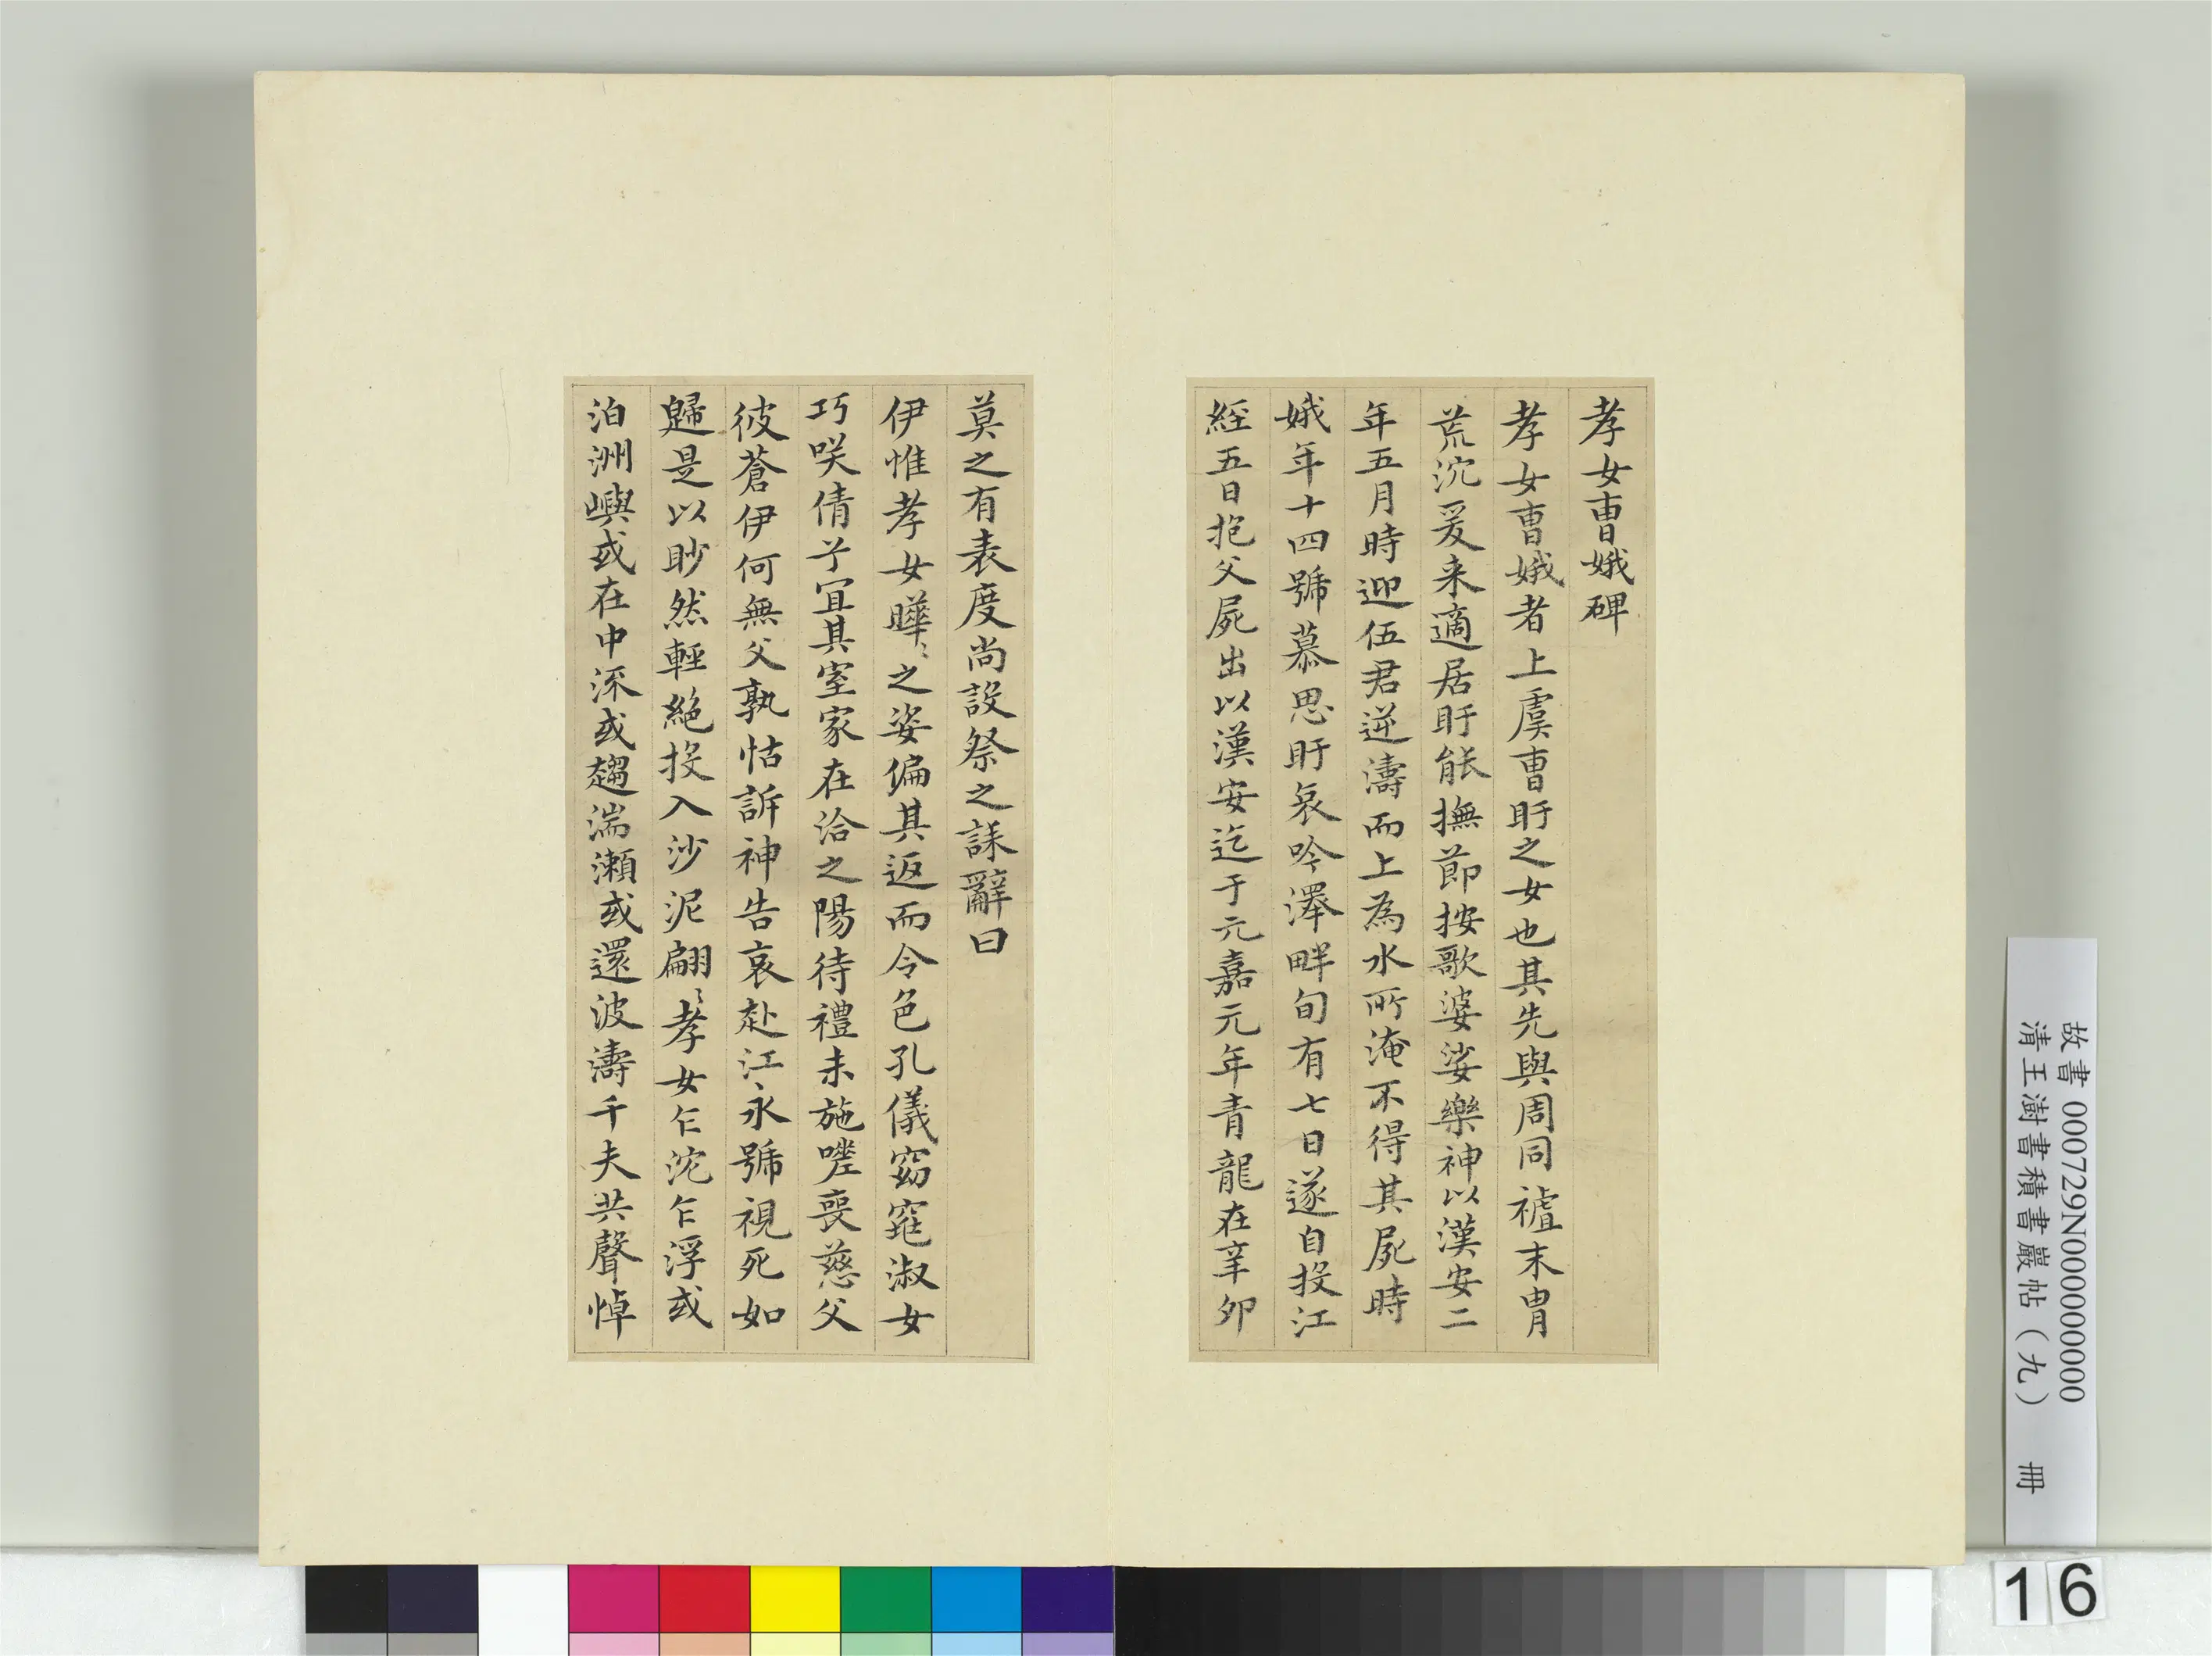 孝女曹娥碑
孝女曹娥者上虞曹盱之女也其先與周同祖末冑
荒沉爰来適居盱能撫節按歌婆娑樂神以漢安二
年五月時迎伍君逆濤而上為水所淹不得其屍時
娥年十四號慕思盱哀吟澤畔旬有七日遂自投江
經五日抱父屍出以漢安迄于元嘉元年青龍在辛卯
莫之有表度尚設祭之誄辭曰
伊惟孝女曄〻之姿偏其返而令色孔儀窈窕淑女
巧咲倩兮宜其室家在洽之陽待禮未施嗟喪慈父
彼蒼伊何無父孰怙訴神告哀赴江永號視死如
歸是以眇然輕絕投入沙泥翩〻孝女乍沉乍浮或
泊洲嶼或在中流或趨湍瀨或還波濤千夫共聲悼
故書 000729N000000000
清王澍書積書巖帖（九） 冊
16